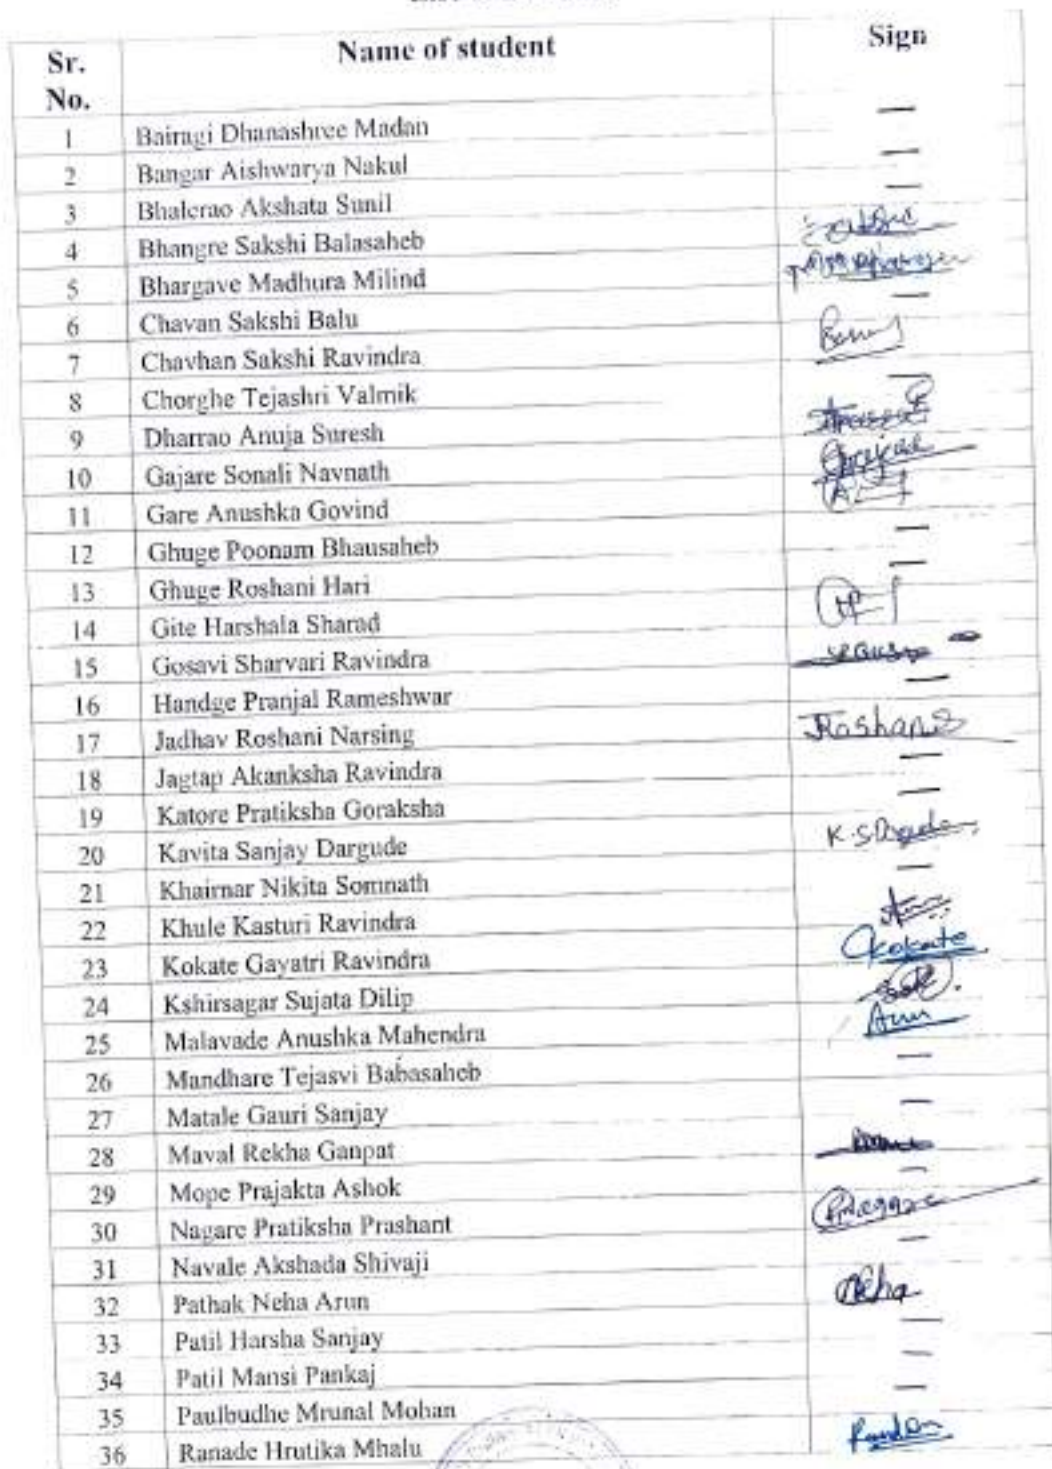 Sr. No. Name of student Sign
1 Bairagi Dhanashree Madan —
2 Bangar Aishwarya Nakul —
3 Bhalerao Akshata Sunil —
4 Bhangre Sakshi Balasaheb
5 Bhargave Madhura Milind
6 Chavan Sakshi Balu —
7 Chavhan Sakshi Ravindra
8 Chorghe Tejashri Valmik —
9 Dharrao Anuja Suresh
10 Gajare Sonali Navnath
11 Gare Anushka Govind
12 Ghuge Poonam Bhausaheb —
13 Ghuge Roshani Hari —
14 Gite Harshala Sharad
15 Gosavi Sharvari Ravindra
16 Handge Pranjal Rameshwar —
17 Jadhav Roshani Narsing
18 Jagtap Akanksha Ravindra —
19 Katore Pratiksha Goraksha —
20 Kavita Sanjay Dargude
21 Khairnar Nikita Somnath —
22 Khule Kasturi Ravindra
23 Kokate Gayatri Ravindra Gkokate
24 Kshirsagar Sujata Dilip
25 Malavade Anushka Mahendra
26 Mandhare Tejasvi Babasaheb —
27 Matale Gauri Sanjay —
28 Maval Rekha Ganpat
29 Mope Prajakta Ashok —
30 Nagare Pratiksha Prashant
31 Navale Akshada Shivaji —
32 Pathak Neha Arun Neha
33 Patil Harsha Sanjay —
34 Patil Mansi Pankaj —
35 Paulbudhe Mrunal Mohan —
36 Ranade Hrutika Mhalu